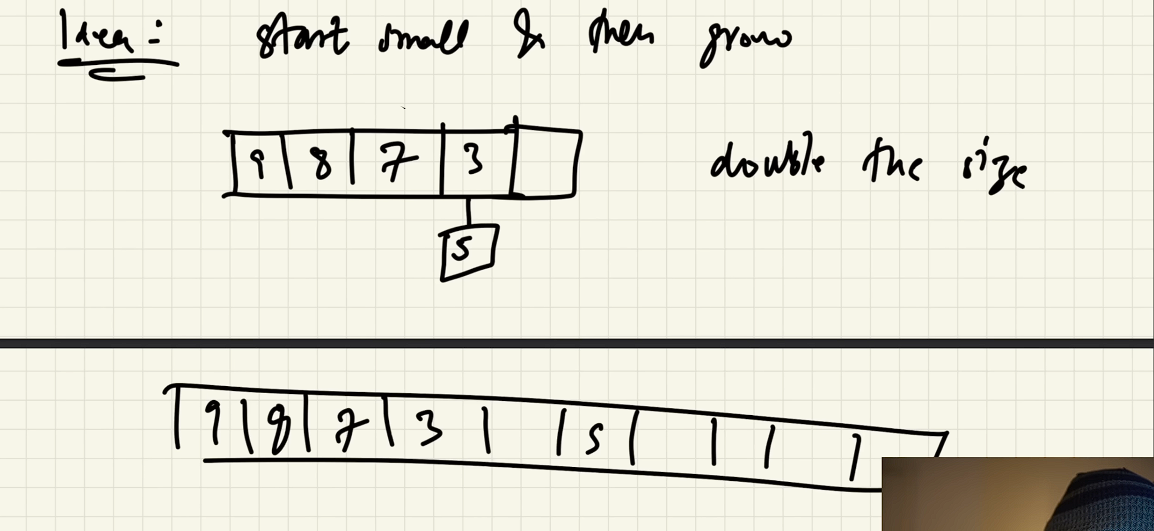 Idea: start small & then grow
9 8 7 3
double the size
5
9 8 7 3 5